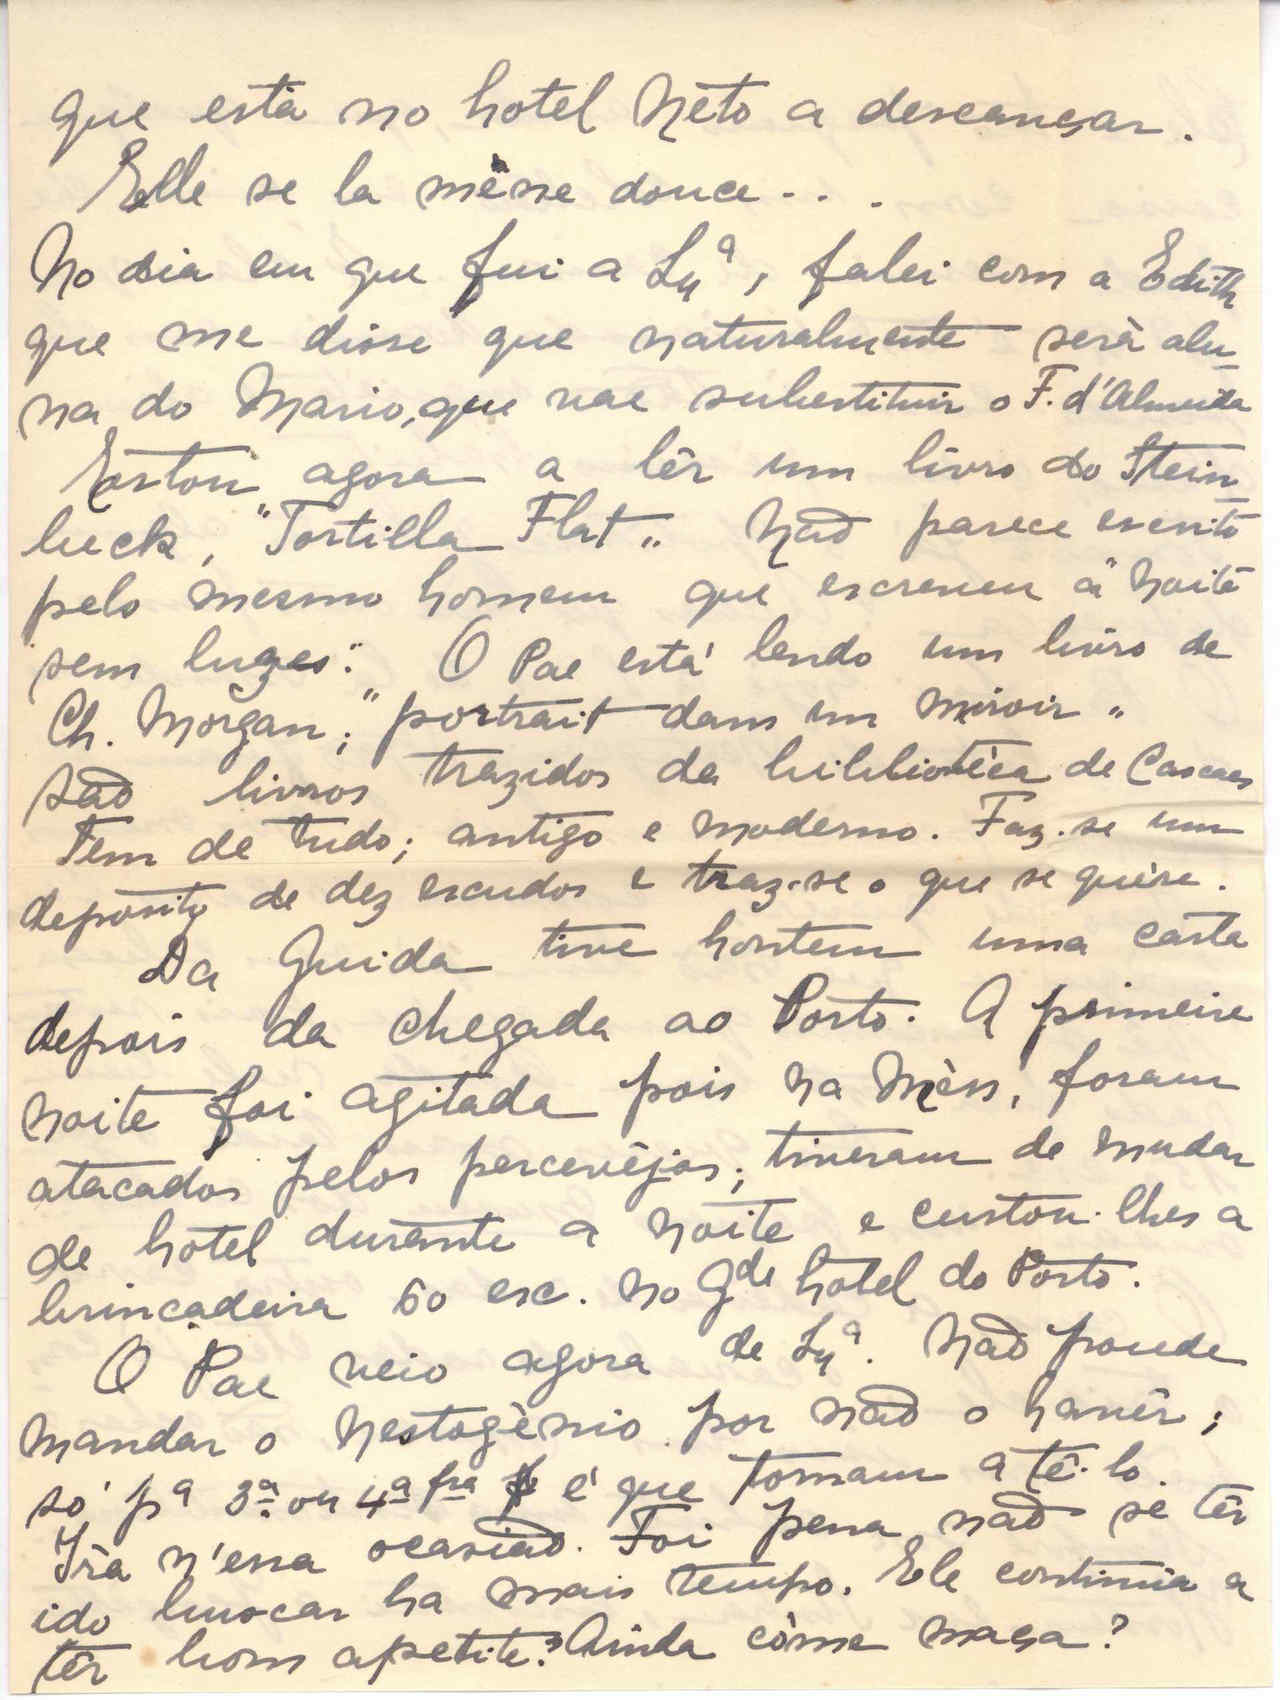 que está no hotel Néto a descançar.
Elle se la mène douce...
No dia em que fui a Lxª, falei com a Edith
que me disse que naturalmente será alu-
na do Mario, que vae substituir o F. d'Almeida
Estou agora a lêr um livro do Stein-
beck, "Tortilla Flat". Não parece escrito
pelo mesmo homem que escreveu a "Noite
sem luzes". O Pae está lendo um livro de
Ch. Morgan; "portrait dans un miroir"
São livros trazidos da bibliotéca de Cascaes
Tem de tudo; antigo e moderno. Faz-se um
deposito de dez escudos e traz-se o que se quère.
Da Guida tive hontem uma carta
depois da chegada ao Porto. A primeira
noite foi agitada pois na Mèss, foram
atacados pelos percevêjos; tiveram de mudar
de hotel durante a noite e custou-lhes a
brincadeira 60 esc. no Gde hotel do Porto.
O Pae veio agora de Lxª. Não poude
mandar o Nestogènio por não o havêr;
só pª 3ª ou 4ª fra é que tornam a tê-lo.
Irá n'essa ocasião. Foi pena não se têr
ido buscar ha mais tempo. Ele continúa a
têr bom apetite? Ainda còme maçã?